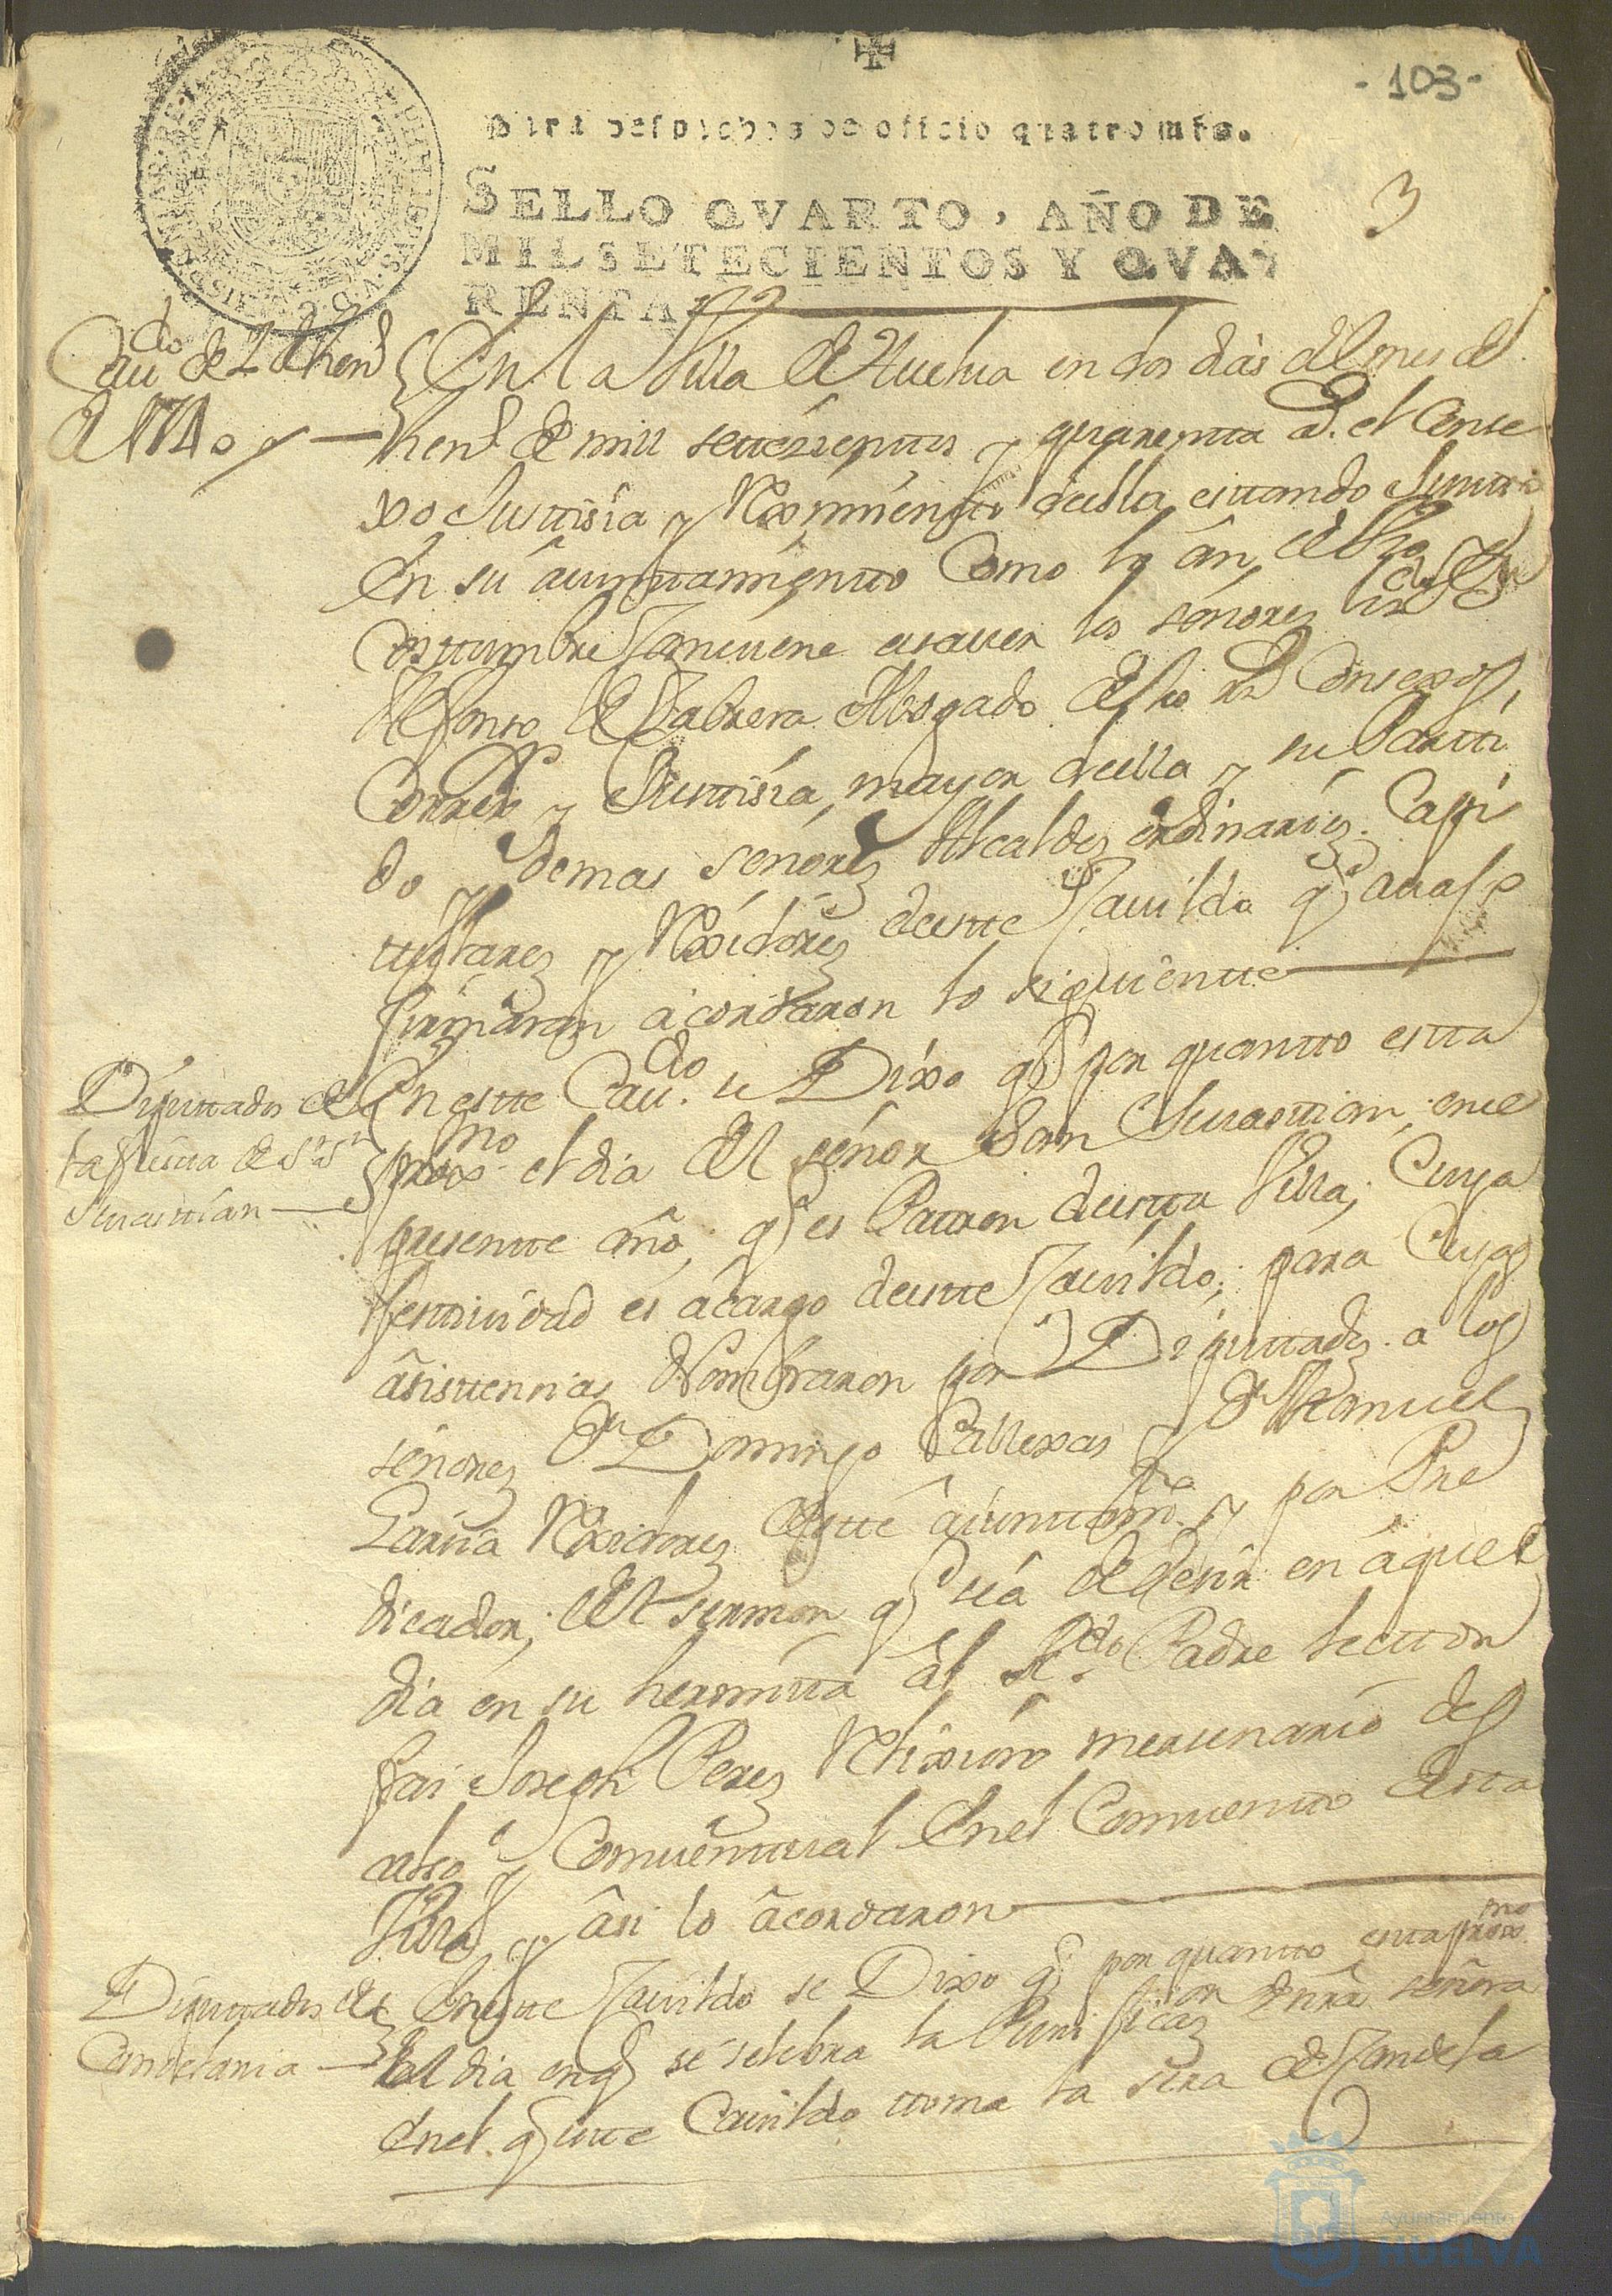 -103-
Para despachos de officio quatro mrs.
SELLO QVARTO, AÑO DE
MIL SETECIENTOS Y QVA
RENTA
3
Cau.do de 2 de hen.o
de 1740
En la Villa de Huelua en dos dias del mes de
hen.o de mill settezientos y quarenta a.s el Conse
xo Justtisia y Reximiento deella esttando Juntto
en su aiunttamientto Como lo an de Vso y
Costtumbre Combiene asauer los señores Liz.do Dn
Alfonso de Cabrera Abogado de los R.s Consexos,
Correx.or y Justtisia mayor deella y su Partti
do y demas señores Alcaldes ordinarios. Capi
ttulares y Rexidores deestte Cauildo q.e auajo
firmaran acordaron lo siguientte
Diputtados de
la fiestta de S.r S.n
Seuasttian
En estte Cau.do se Dixo q.e por quantto estta
prox.mo el dia del señor San Seuasttian, en el
presentte año, q.e es Pattron deestta Villa, Cuya
festtiuidad es acargo deestte Cauildo; para Cuyas
asisttencias Nombraron por Diputtados a los
señores Dn Domingo Vallexas y Dn Manuel
Garsia Rexidores deestte aiunttam.to y por Pre
dicador, del sermon q.e sea de desir en aquel
dia en su hermitta al R.do Padre Lecttor
frai Joseph Peres Relixioso mersenario des
calso y Comuenttual en el Comuentto destta
Villa y asi lo acordaron
Diputtados de
Candelaria
En estte Cauildo se Dixo q.e por quantto estta prox.mo
el dia en q.e se selebra la Purificaz.on de nra señora
en el q.e estte Cauildo ttoma la sera de Candela
Ayuntamiento de
HUELVA